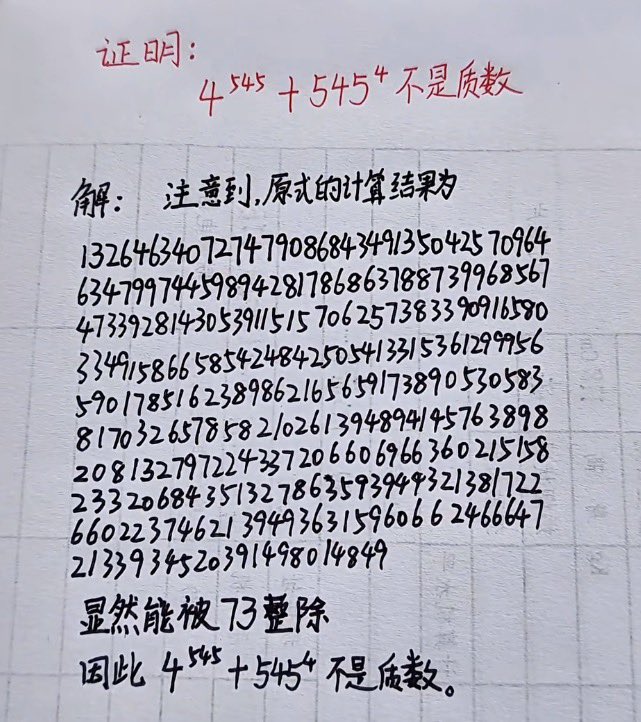 证明:
4^545 + 545^4 不是质数
解: 注意到,原式的计算结果为
1326463407274790868434913504257０964
63479974459894281786863788739968567
4733928143053911515706257383390916580
33491586658542484250541331536129９956
5901785162389862165659173890530583
81703265785821026139489419５763898
20813279722433720660696636０215158
2332068435132786359394932138１722
660223746213949363159606624666４7
213393452039149801４849
显然能被73整除
因此 4^545 + 545^4 不是质数。